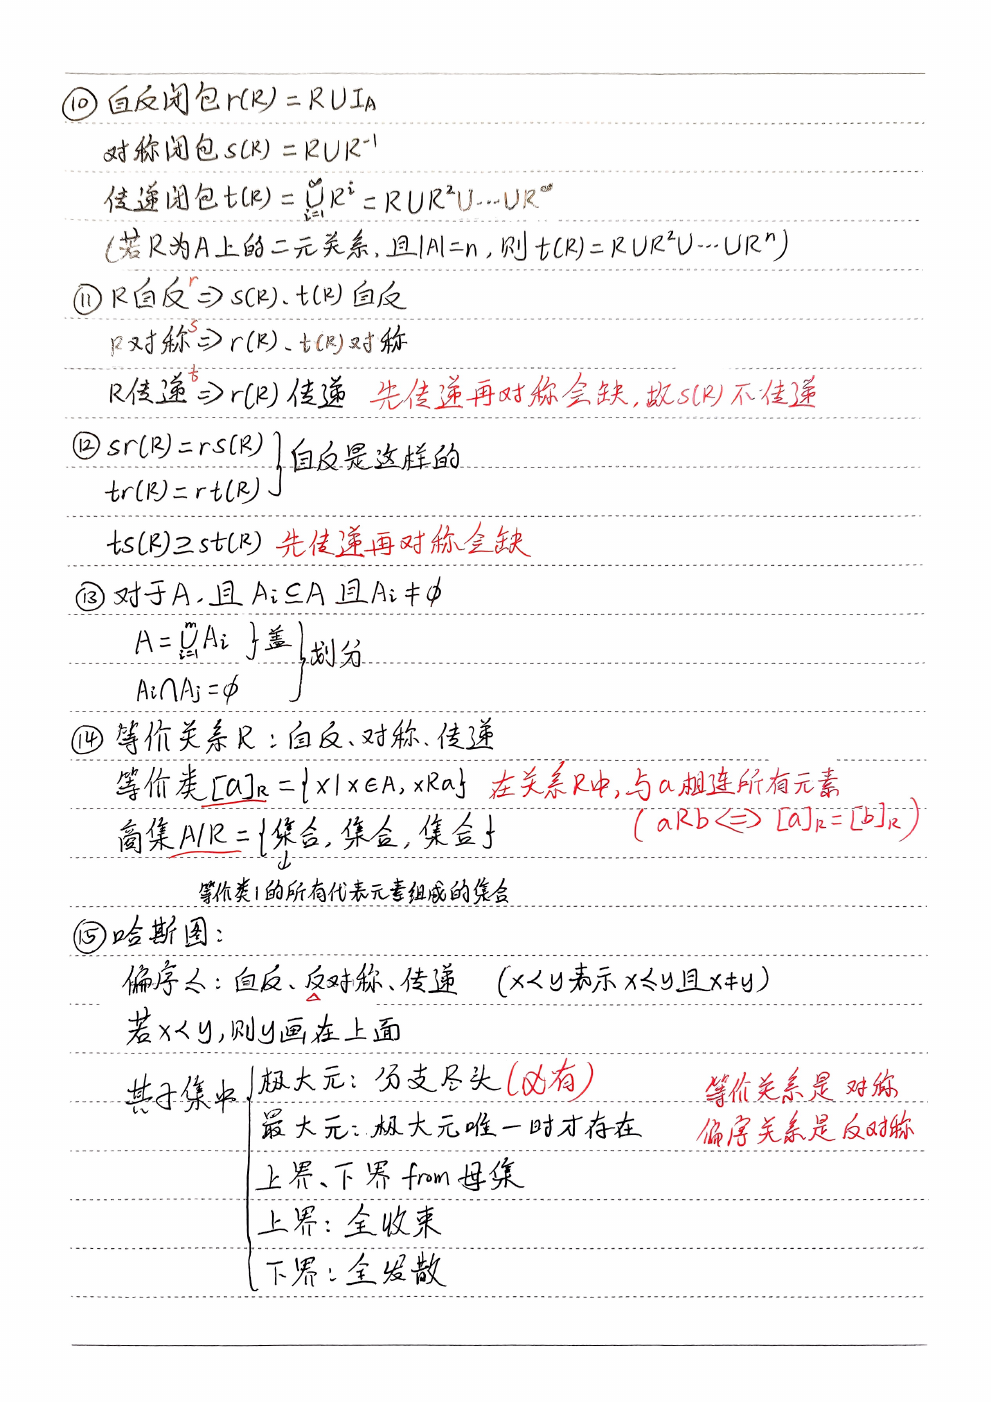 ⑩ 自反闭包 r(R) = R∪I_A
对称闭包 s(R) = R∪R⁻¹
传递闭包 t(R) = ∞∪i=1 Rⁱ = R∪R²∪…∪R^∞
(若R为A上的二元关系,且|A|=n,则 t(R)=R∪R²∪…∪Rⁿ)
⑪ R自反 r⇒ s(R)、t(R)自反
R对称 s⇒ r(R)、t(R)对称
R传递 t⇒ r(R)传递 先传递再对称会缺,故s(R)不传递
⑫ sr(R)=rs(R)
自反是这样的
tr(R)=rt(R)
ts(R)⊇st(R) 先传递再对称会缺
⑬ 对于A,且 Ai⊆A 且Ai≠∅
A = m∪i=1 Ai }盖
}划分
Ai∩Aj=∅
⑭ 等价关系R:自反、对称、传递
等价类[a]_R={x|x∈A, xRa} 在关系R中,与a相连所有元素
(aRb⇔[a]_R=[b]_R)
商集A/R={集合,集合,集合}
↓
等价类1的所有代表元素组成的集合
⑮ 哈斯图:
偏序≼:自反、反对称、传递 (x≺y表示x≤y且x≠y)
若x≺y,则y画在上面
其子集中
极大元:分支尽头(必有)
等价关系是对称
最大元:极大元唯一时才存在
偏序关系是反对称
上界、下界 from 母集
上界:全收束
下界:全发散